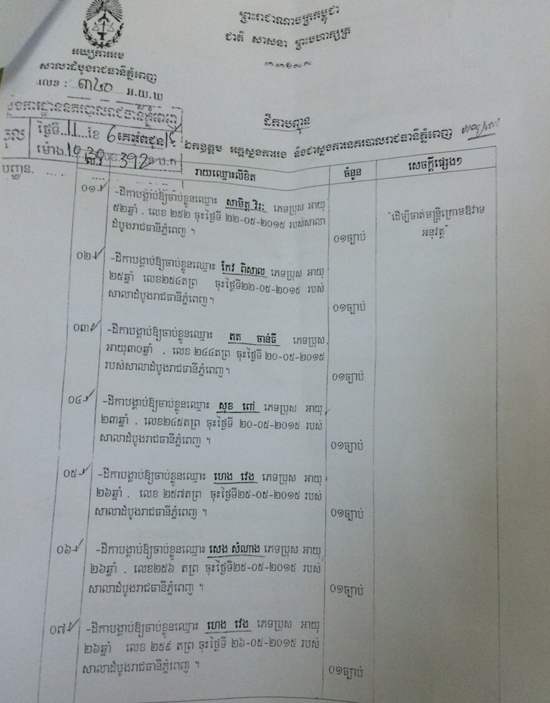 ព្រះរាជាណាចក្រកម្ពុជា
ជាតិ សាសនា ព្រះមហាក្សត្រ
អយ្យការអម
សាលាដំបូងរាជធានីភ្នំពេញ
លេខ : ៣៤០ អ.យ.ឃ
ដីកាបញ្ជូន
ស្នងការដ្ឋាននគរបាលរាជធានីភ្នំពេញ
ថ្ងៃទី 11 ខែ 6
ម៉ោង
392
ឯកឧត្តម អគ្គស្នងការរង និងជាស្នងការនគរបាលរាជធានីភ្នំពេញ
រាយឈ្មោះលិខិត ចំនួន សេចក្តីផ្សេងៗ
០១ -ដីកាបង្គាប់ឱ្យចាប់ខ្លួនឈ្មោះ សាមិត្ត វិរៈ ភេទប្រុស អាយុ
៥២ឆ្នាំ . លេខ ២៥២ ចុះថ្ងៃទី ២២-០៥-២០១៥ របស់សាលា
ដំបូងរាជធានីភ្នំពេញ ។ ០១ច្បាប់
"ដើម្បីចាត់មន្ត្រីក្រោមឱវាទ
អនុវត្ត"
០២ -ដីកាបង្គាប់ឱ្យចាប់ខ្លួនឈ្មោះ កែវ ពិសាល ភេទប្រុស អាយុ
២៥ឆ្នាំ លេខ២៥៤តព្រ ចុះថ្ងៃទី២២-០៥-២០១៥ របស់
សាលាដំបូងរាជធានីភ្នំពេញ។ ០១ច្បាប់
០៣ -ដីកាបង្គាប់ឱ្យចាប់ខ្លួនឈ្មោះ តត ចាន់ធី ភេទប្រុស
អាយុ៣០ឆ្នាំ . លេខ ២៤៤តព្រ ចុះថ្ងៃទី ២០-០៥-២០១៥
របស់សាលាដំបូងរាជធានីភ្នំពេញ។ ០១ច្បាប់
០៤ -ដីកាបង្គាប់ឱ្យចាប់ខ្លួនឈ្មោះ សុខ ពៅ ភេទប្រុស អាយុ
២៣ឆ្នាំ . លេខ២៤៥តព្រ ចុះថ្ងៃទី ២០-០៥-២០១៥ របស់
សាលាដំបូងរាជធានីភ្នំពេញ ។ ០១ច្បាប់
០៥ -ដីកាបង្គាប់ឱ្យចាប់ខ្លួនឈ្មោះ ហេង វេង ភេទប្រុស អាយុ
២៦ឆ្នាំ . លេខ ២៥៧តព្រ ចុះថ្ងៃទី២៥-០៥-២០១៥ របស់
សាលាដំបូងរាជធានីភ្នំពេញ ។ ០១ច្បាប់
០៦ -ដីកាបង្គាប់ឱ្យចាប់ខ្លួនឈ្មោះ សេង សំណាង ភេទប្រុស អាយុ
២៦ឆ្នាំ . លេខ២៥៦ តព្រ ចុះថ្ងៃទី២៥-០៥-២០១៥ របស់
សាលាដំបូងរាជធានីភ្នំពេញ ។ ០១ច្បាប់
០៧ -ដីកាបង្គាប់ឱ្យចាប់ខ្លួនឈ្មោះ ហេង វេង ភេទប្រុស អាយុ
២៦ឆ្នាំ លេខ ២៥៩ តព្រ ចុះថ្ងៃទី ២៦-០៥-២០១៥ របស់
សាលាដំបូងរាជធានីភ្នំពេញ ។ ០១ច្បាប់